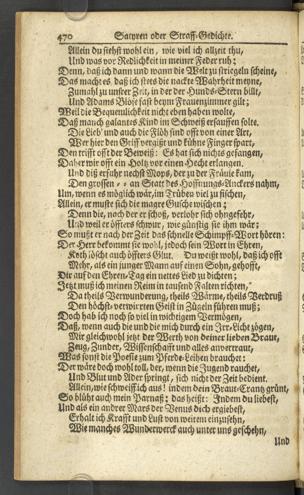 470 Satyren oder Straff-Gedichte.
Allein du siehst wohl ein, wie viel ich allzeit thu,
Und was vor Redlichkeit in meiner Feder ruh;
Denn, daß ich dann und wann die Welt zu striegeln scheine,
Das macht es, daß ich stets die nackte Wahrheit meyne,
Zumahl zu unser Zeit, in der der Hunds-Stern billt,
Und Adams Blöse fast beym Frauenzimmer gilt;
Weil die Bequemlichkeit nicht den haben wolte,
Daß manch galantes Kind im Schweiß ersauffen solte.
Die Lieb' und auch die Flöh sind offt von einer Art,
Wer hier den Griff vergißt und kühne Finger spart,
Den trifft offt der Beweiß: Es hat sich nichts gefangen,
Daher wir offt ein Holtz vor einen Hecht erlangen.
Und diß erfahr nechst Mops, der zu der Fräule kam,
Den grossen - - an Statt des Hoffnungs-Anckers nahm,
Um, wenn es möglich wär, im Trüben viel zu fischen,
Allein, er muste sich die magre Gusche wischen;
Denn die, nach der er schoß, verlohr sich ohngefehr,
Und weil er öffters schwur, wie günstig sie ihm wär;
So mußt er nach der Zeit das schnelle Schimpff-Wort hören:
Der Herr bekommt sie wohl, jedoch sein Wort in Ehren,
Koth löscht auch öffters Glut. Du weißt wohl, daß ich offt
Mehr, als ein junger Mann auf einen Sohn, gehofft,
Die auf den Ehren-Tag ein nettes Lied zu dichten;
Jetzt muß ich meinen Reim in tausend Falten richten,
Da theils Verwunderung, theils Wärme, theils Verdruß
Den höchst-verwirrten Geist in Zügeln führen muß;
Doch hab ich noch so viel in wichtigem Vermögen,
Daß, wenn auch die und die mich durch ein Irr-Licht zögen,
Mir gleichwohl jetzt der Werth von deiner lieben Braut,
Zeug, Zunder, Wissenschafft und alles anvertraut,
Was sonst die Poesie zum Pferde-Leihen brauchet:
Der wäre doch wohl toll, der, wenn die Jugend rauchet,
Und Blut und Ader springt, sich nicht der Zeit bedient.
Allein, wie schweiff ich aus! indem dein Braut-Crantz grünt,
So blüht auch mein Parnaß; das heißt: Indem du liebest,
Und als ein andrer Mars der Venus dich ergiebest,
Erhalt ich Krafft und Lust von weitem einzusehn,
Wie manches Wunderwerck auch unter uns geschehn,
Und